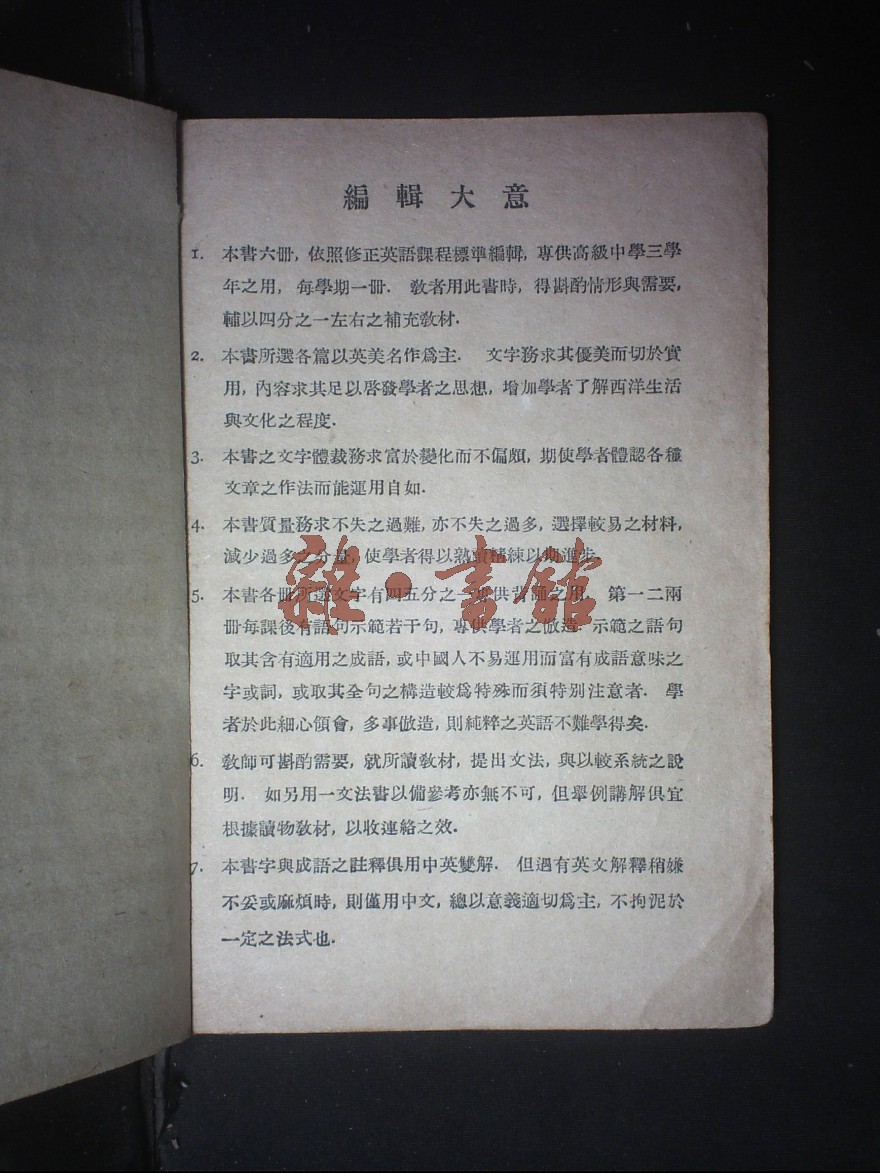 編輯大意
1. 本書六冊, 依照修正英語課程標準編輯, 專供高級中學三學
年之用, 每學期一冊. 敎者用此書時, 得斟酌情形與需要,
輔以四分之一左右之補充敎材.
2. 本書所選各篇以英美名作爲主. 文字務求其優美而切於實
用, 內容求其足以啓發學者之思想, 增加學者了解西洋生活
與文化之程度.
3. 本書之文字體裁務求富於變化而不偏頗, 期使學者體認各種
文章之作法而能運用自如.
4. 本書質量務求不失之過難, 亦不失之過多, 選擇較易之材料,
減少過多之分量, 使學者得以熟讀精練以期進步.
5. 本書各冊所選文字有四五分之一專供背誦之用. 第一二兩
冊每課後有語句示範若干句, 專供學者之倣造. 示範之語句
取其含有適用之成語, 或中國人不易運用而富有成語意味之
字或詞, 或取其全句之構造較爲特殊而須特別注意者. 學
者於此細心領會, 多事倣造, 則純粹之英語不難學得矣.
6. 敎師可斟酌需要, 就所讀敎材, 提出文法, 與以較系統之說
明. 如另用一文法書以備參考亦無不可, 但舉例講解俱宜
根據讀物敎材, 以收連絡之效.
7. 本書字與成語之註釋俱用中英雙解. 但遇有英文解釋稍嫌
不妥或麻煩時, 則僅用中文, 總以意義適切爲主, 不拘泥於
一定之法式也.
雜·書館